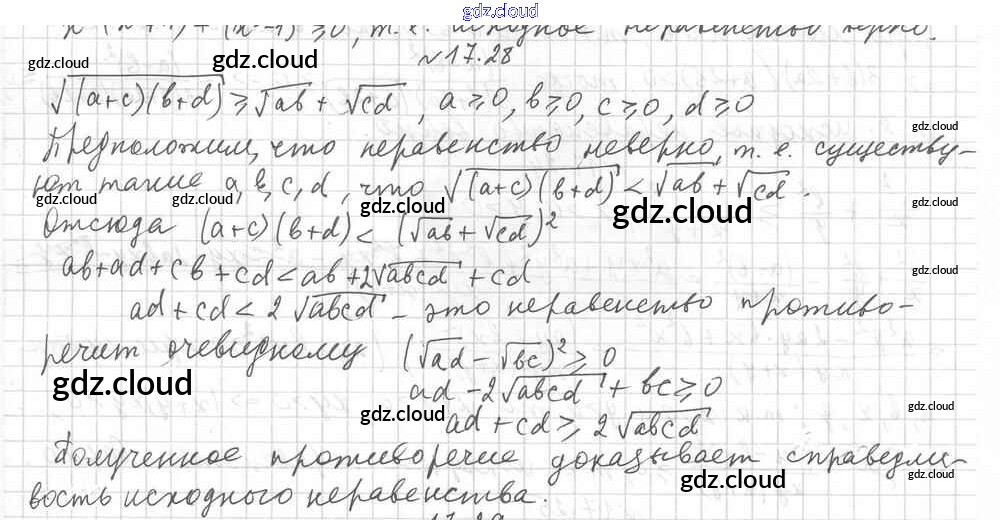 gdz.cloud
x (x+1) + (x-1) ≥0, т.е. исходное неравенство верно.
gdz.cloud gdz.cloud gdz.cloud
№17.28
√(a+c)(b+d) ≥ √ab + √cd, a≥0, b≥0, c≥0, d≥0
gdz.cloud
Предположим, что неравенство неверно, т. е. существу-
gdz.cloud
ют такие a, b, c, d, что √(a+c)(b+d) < √ab + √cd.
gdz.cloud gdz.cloud gdz.cloud gdz.cloud gdz.cloud
Отсюда (a+c)(b+d) < (√ab + √cd)²
ab+ad+cb+cd<ab+2√abcd + cd
gdz.cloud
ad+cd< 2 √abcd - это неравенство противо-
речит очевидному (√ad - √bc)² ≥ 0
gdz.cloud
ad - 2√abcd + bc ≥ 0
gdz.cloud gdz.cloud
ad + cd ≥ 2√abcd
Полученное противоречие доказывает справедли-
gdz.cloud
вость исходного неравенства.
17.29